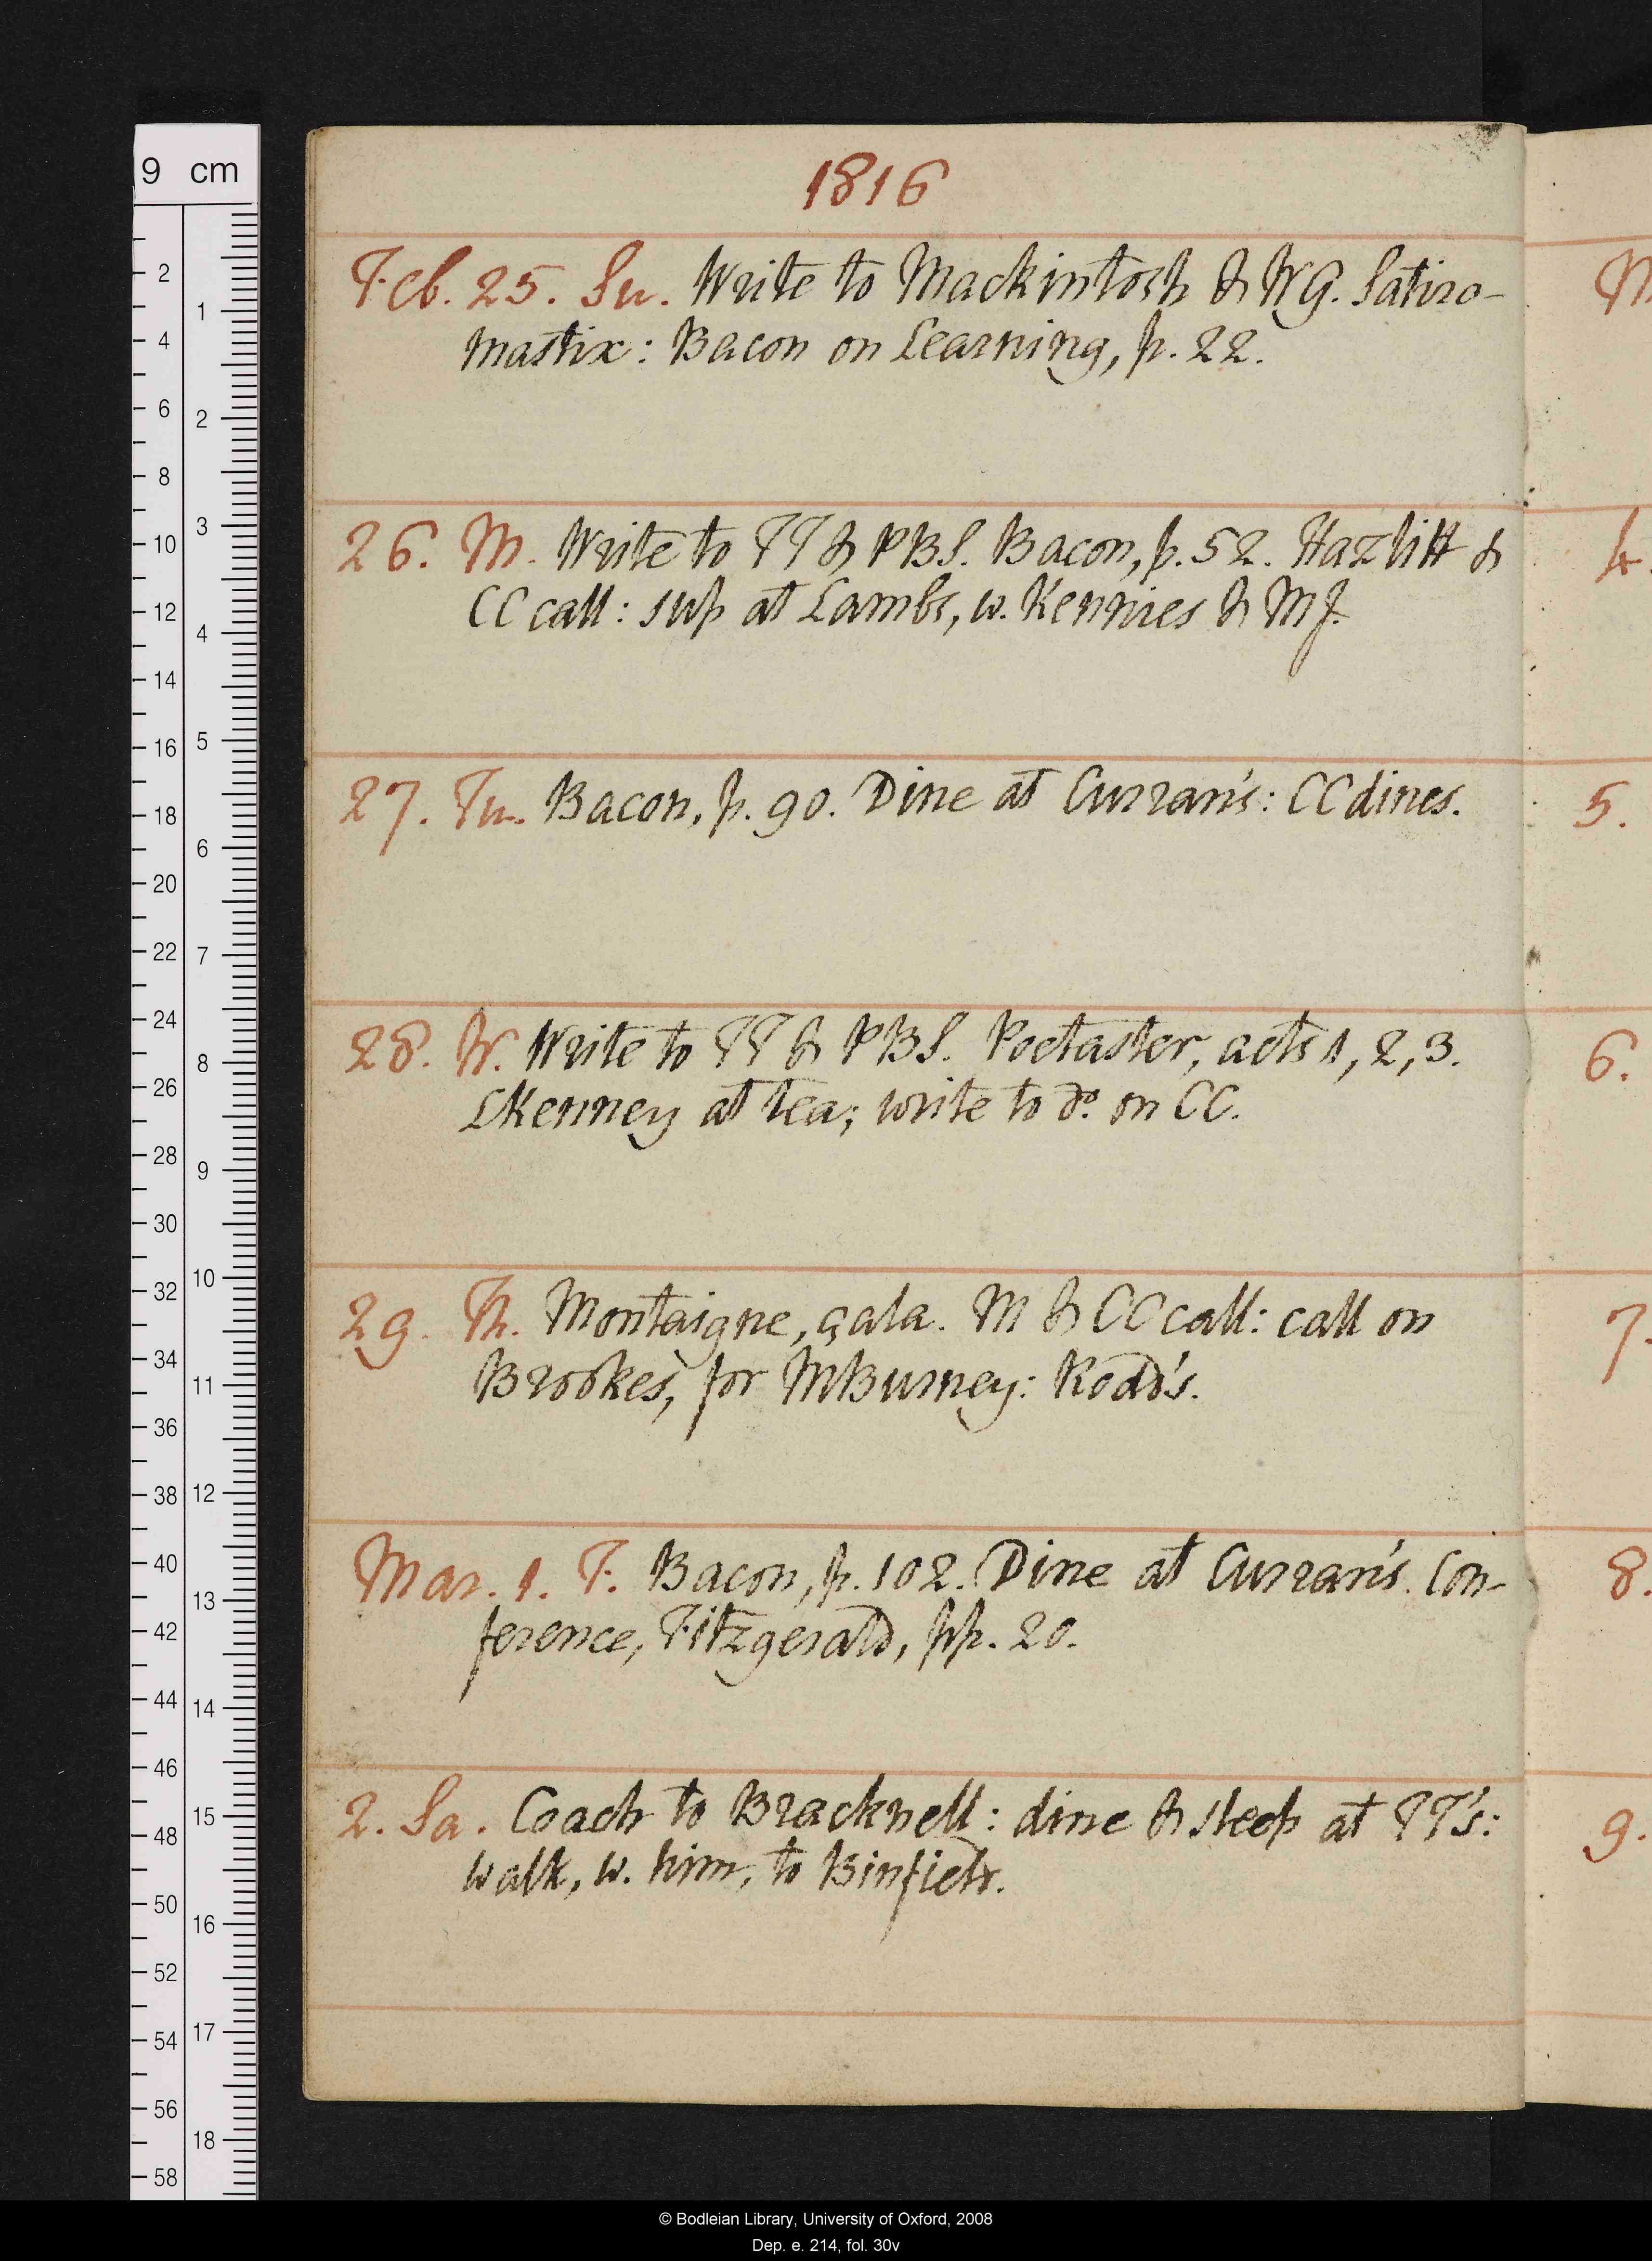 1816
Feb. 25. Su. Write to Mackintosh & WG. Satiro-
mastix: Bacon on Learning, p. 22.
26. M. Write to TT & PBS. Bacon, p. 52. Hazlitt &
CC call: sup at Lambs, w. Kennies & MJ.
27. Tu. Bacon, p. 90. Dine at Curran's: CC dines.
28. W. Write to TT & PBS. Poetaster, acts 1, 2, 3.
LKenney at tea; write to do. on CC.
29. Th. Montaigne, çala. M & CC call: call on
Brookes, for MBurney: Rodd's.
Mar. 1. F. Bacon, p. 102. Dine at Curran's. Con-
ference, Fitzgerald, pp. 20.
2. Sa. Coach to Bracknell: dine & sleep at TT's:
walk, w. him, to Binfield.
M
4.
5.
6.
7.
8.
9.
9 cm
2
4
6
8
10
12
14
16
18
20
22
24
26
28
30
32
34
36
38
40
42
44
46
48
50
52
54
56
58
1
2
3
4
5
6
7
8
9
10
11
12
13
14
15
16
17
18
© Bodleian Library, University of Oxford, 2008
Dep. e. 214, fol. 30v